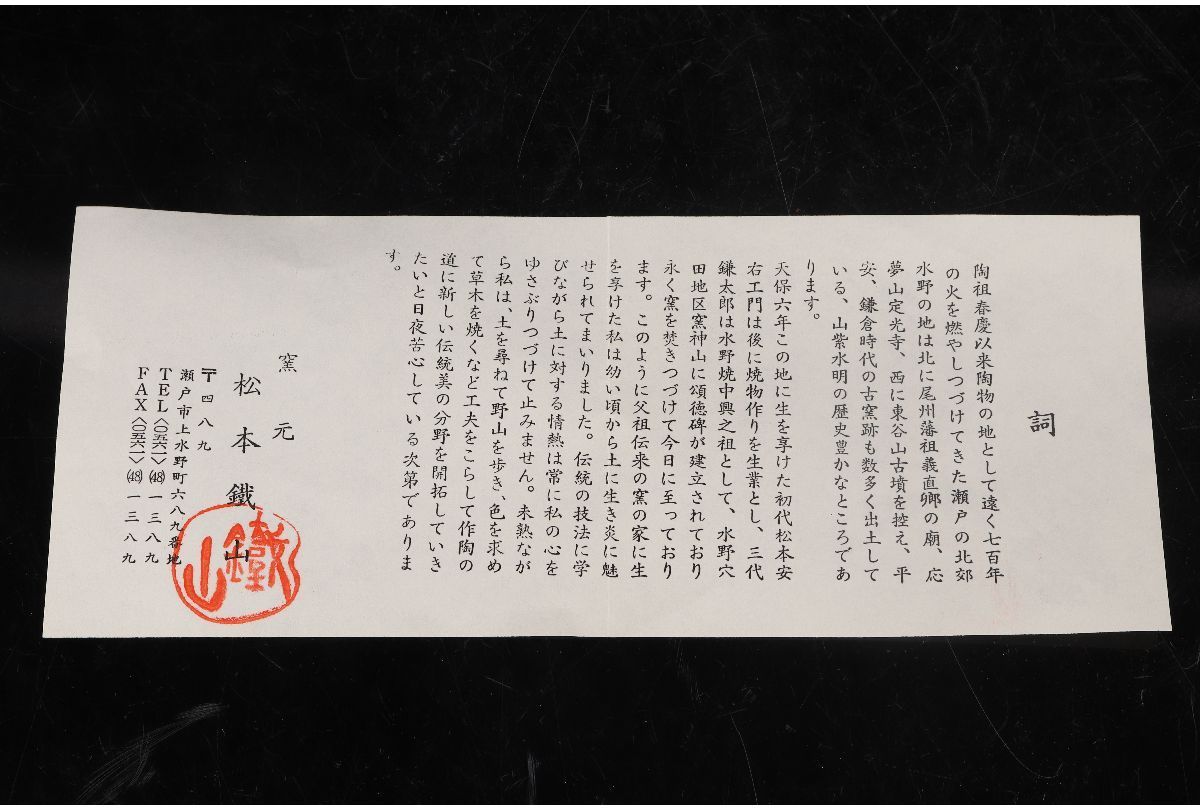 詞
陶祖春慶以来陶物の地として遠く七百年
の火を燃やしつづけてきた瀬戸の北郊
水野の地は北に尾州藩祖義直卿の廟、応
夢山定光寺、西に東谷山古墳を控え、平
安、鎌倉時代の古窯跡も数多く出土して
いる、山紫水明の歴史豊かなところであ
ります。
天保六年この地に生を享けた初代松本安
右エ門は後に焼物作りを生業とし、三代
鎌太郎は水野焼中興之祖として、水野穴
田地区窯神山に頌徳碑が建立されており
永く窯を焚きつづけて今日に至っており
ます。このように父祖伝来の窯の家に生
を享けた私は幼い頃から土に生き炎に魅
せられてまいりました。伝統の技法に学
びながら土に対する情熱は常に私の心を
ゆさぶりつづけて止みません。未熟なが
ら私は、土を尋ねて野山を歩き、色を求め
て草木を焼くなど工夫をこらして作陶の
道に新しい伝統美の分野を開拓していき
たいと日夜苦心している次第でありま
す。
窯元
松本鐵山
〒四八九
瀬戸市上水野町六八九番地
TEL〈〇五六一〉㊽一三八九
FAX〈〇五六一〉㊽一三八九
鐵山